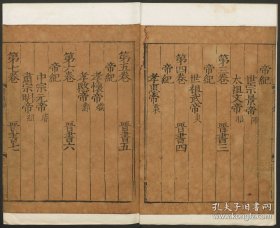 帝紀
世宗景帝師
太祖文帝昭
第三卷 晉書三
帝紀
世祖武帝炎
第四卷 晉書四
帝紀
孝惠帝衷
第五卷 晉書五
帝紀
孝懷帝熾
孝愍帝鄴
第六卷 晉書六
帝紀
中宗元帝睿
肅宗明帝紹
第七卷 晉書七
孔夫子旧书网